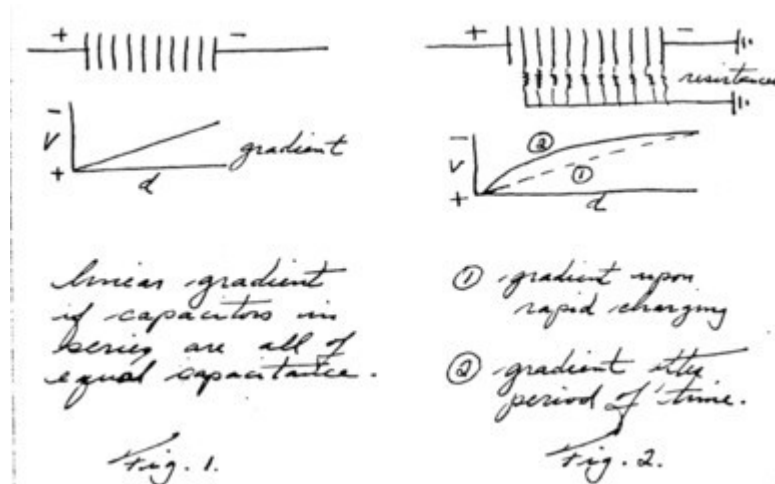 + −
−
V
+
d
gradient
linear gradient
if capacitors in
series are all of
equal capacitance.
Fig. 1.
+ −
resistances
−
V
+
②
①
d
① gradient upon
rapid charging
② gradient
period of time.
Fig. 2.